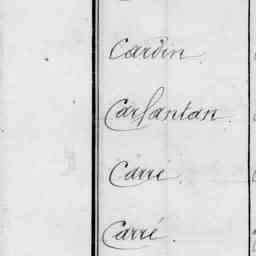 Cardin.
Carfantan.
Carré.
Carré.